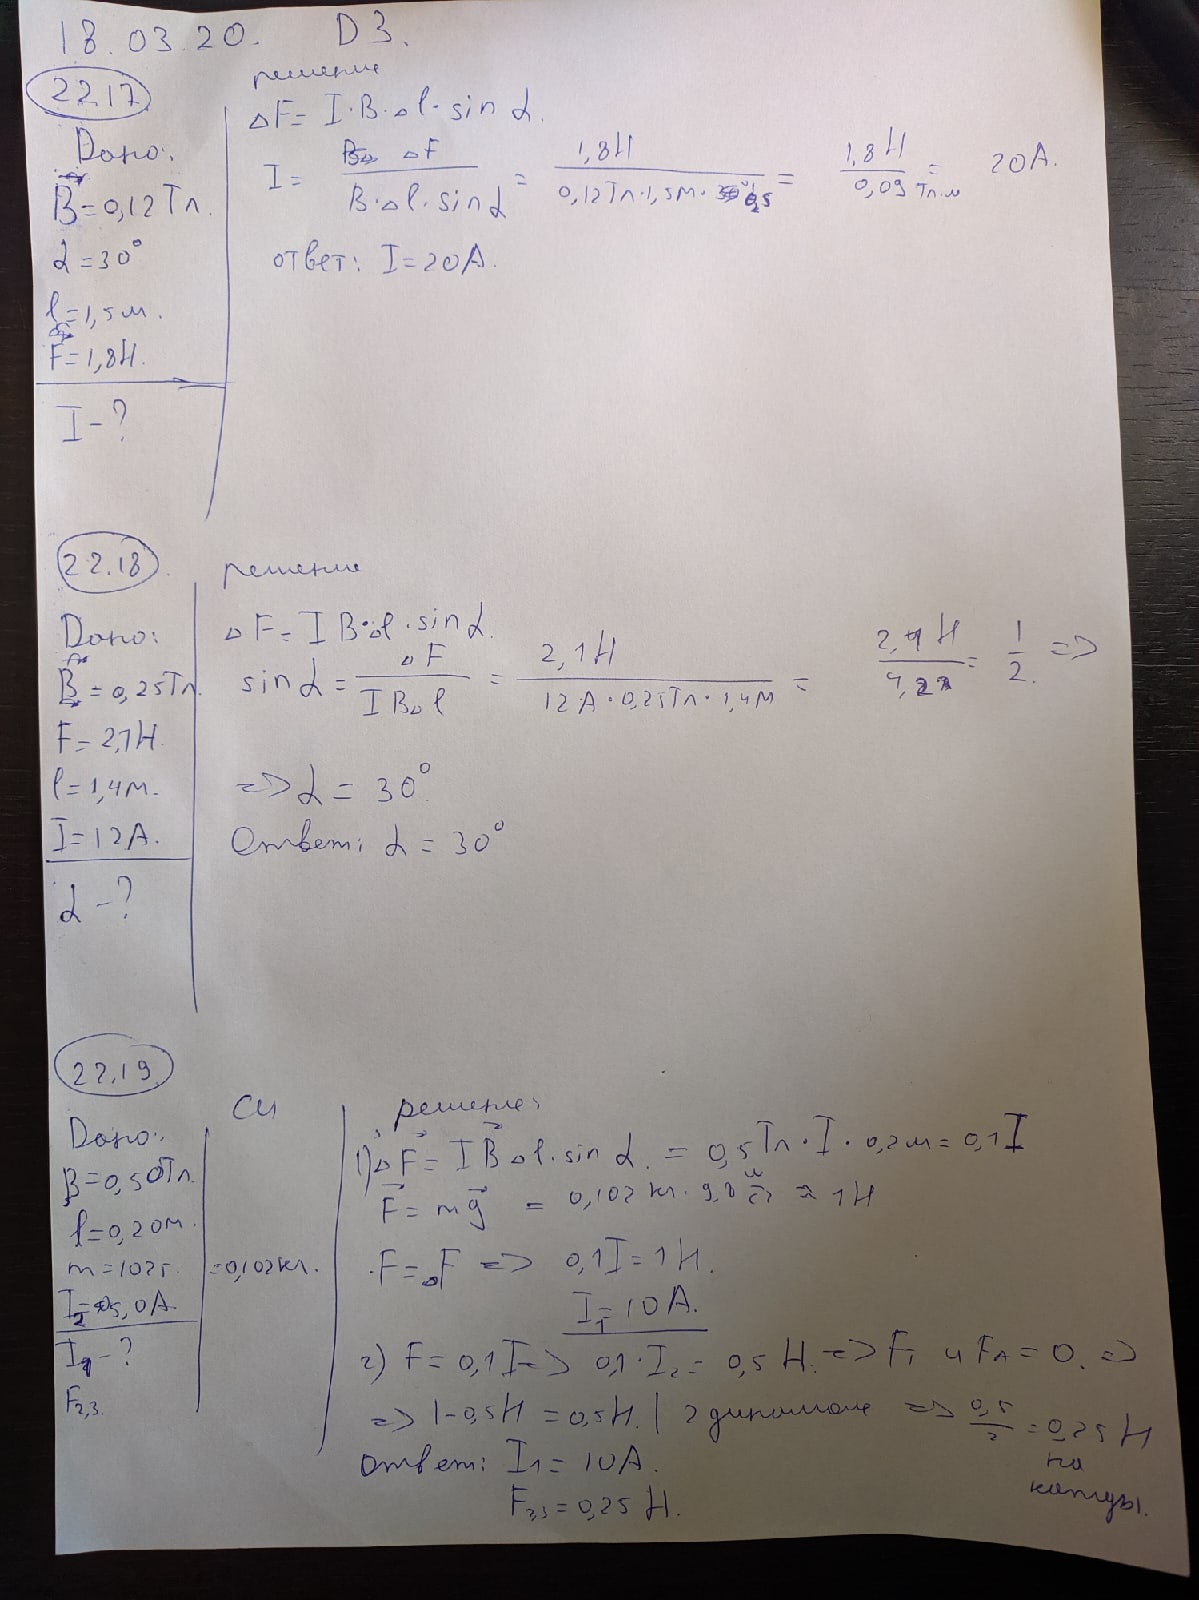 18.03.20. ДЗ.
22.17
решение
Дано:
B=0,12Тл.
α=30°
l=1,5м.
F=1,8Н.
I-?
ΔF= I·B·Δl·sin α.
I= ΔF / B·Δl·sin α = 1,8Н / 0,12Тл·1,5м·0,5 = 1,8Н / 0,09 Тл·м = 20А.
ответ: I=20А.
22.18
решение
Дано:
B=0,25Тл.
F=2,1Н
l=1,4м.
I=12А.
α-?
ΔF= I B·Δl·sin α.
sin α = ΔF / I B Δl = 2,1Н / 12А·0,25Тл·1,4м = 2,1Н / 4,2 = 1/2. =>
=> α = 30°
Ответ: α = 30°
22.19
Дано:
B=0,50Тл.
l=0,20м.
m=102г.
I₂=5,0А.
I₁-?
F₂,₃
СИ
=0,102кг.
решение:
1) ΔF⃗= I B⃗ Δl·sin α. = 0,5Тл·I·0,2м=0,1I
F⃗= mg⃗ = 0,102 кг·9,8 ≈ 1Н
F=ΔF => 0,1I=1Н.
I₁=10А.
2) F=0,1I=> 0,1·I₂= 0,5Н.=> F₁ и Fᴀ=0. =>
=> 1-0,5Н=0,5Н. | 2 => 0,5/2 =0,25Н
на
Ответ: I₁= 10А.
F₂,₃=0,25Н.